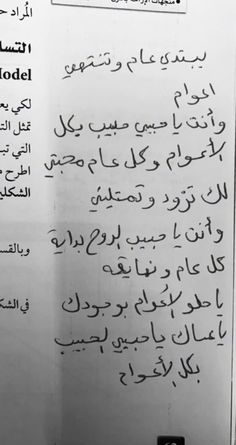 المُراد
التسا
Model
لكي يع
تمثل الت
التي تب
اطرح م
الشكلين
وبالقسم
في الشك
يبتدي عام وتنتهي
اعوام
وأنت يا حبيبي حبيب بكل
الأعوام وكل عام محبتي
لك تزود و تمتليئ
وأنت يا حبيب الروح بداية
كل عام و نهايقه
يا حلو الأعوام بوجودك
يا عساك يا حبيبي الحبيب
بكل الأعوام